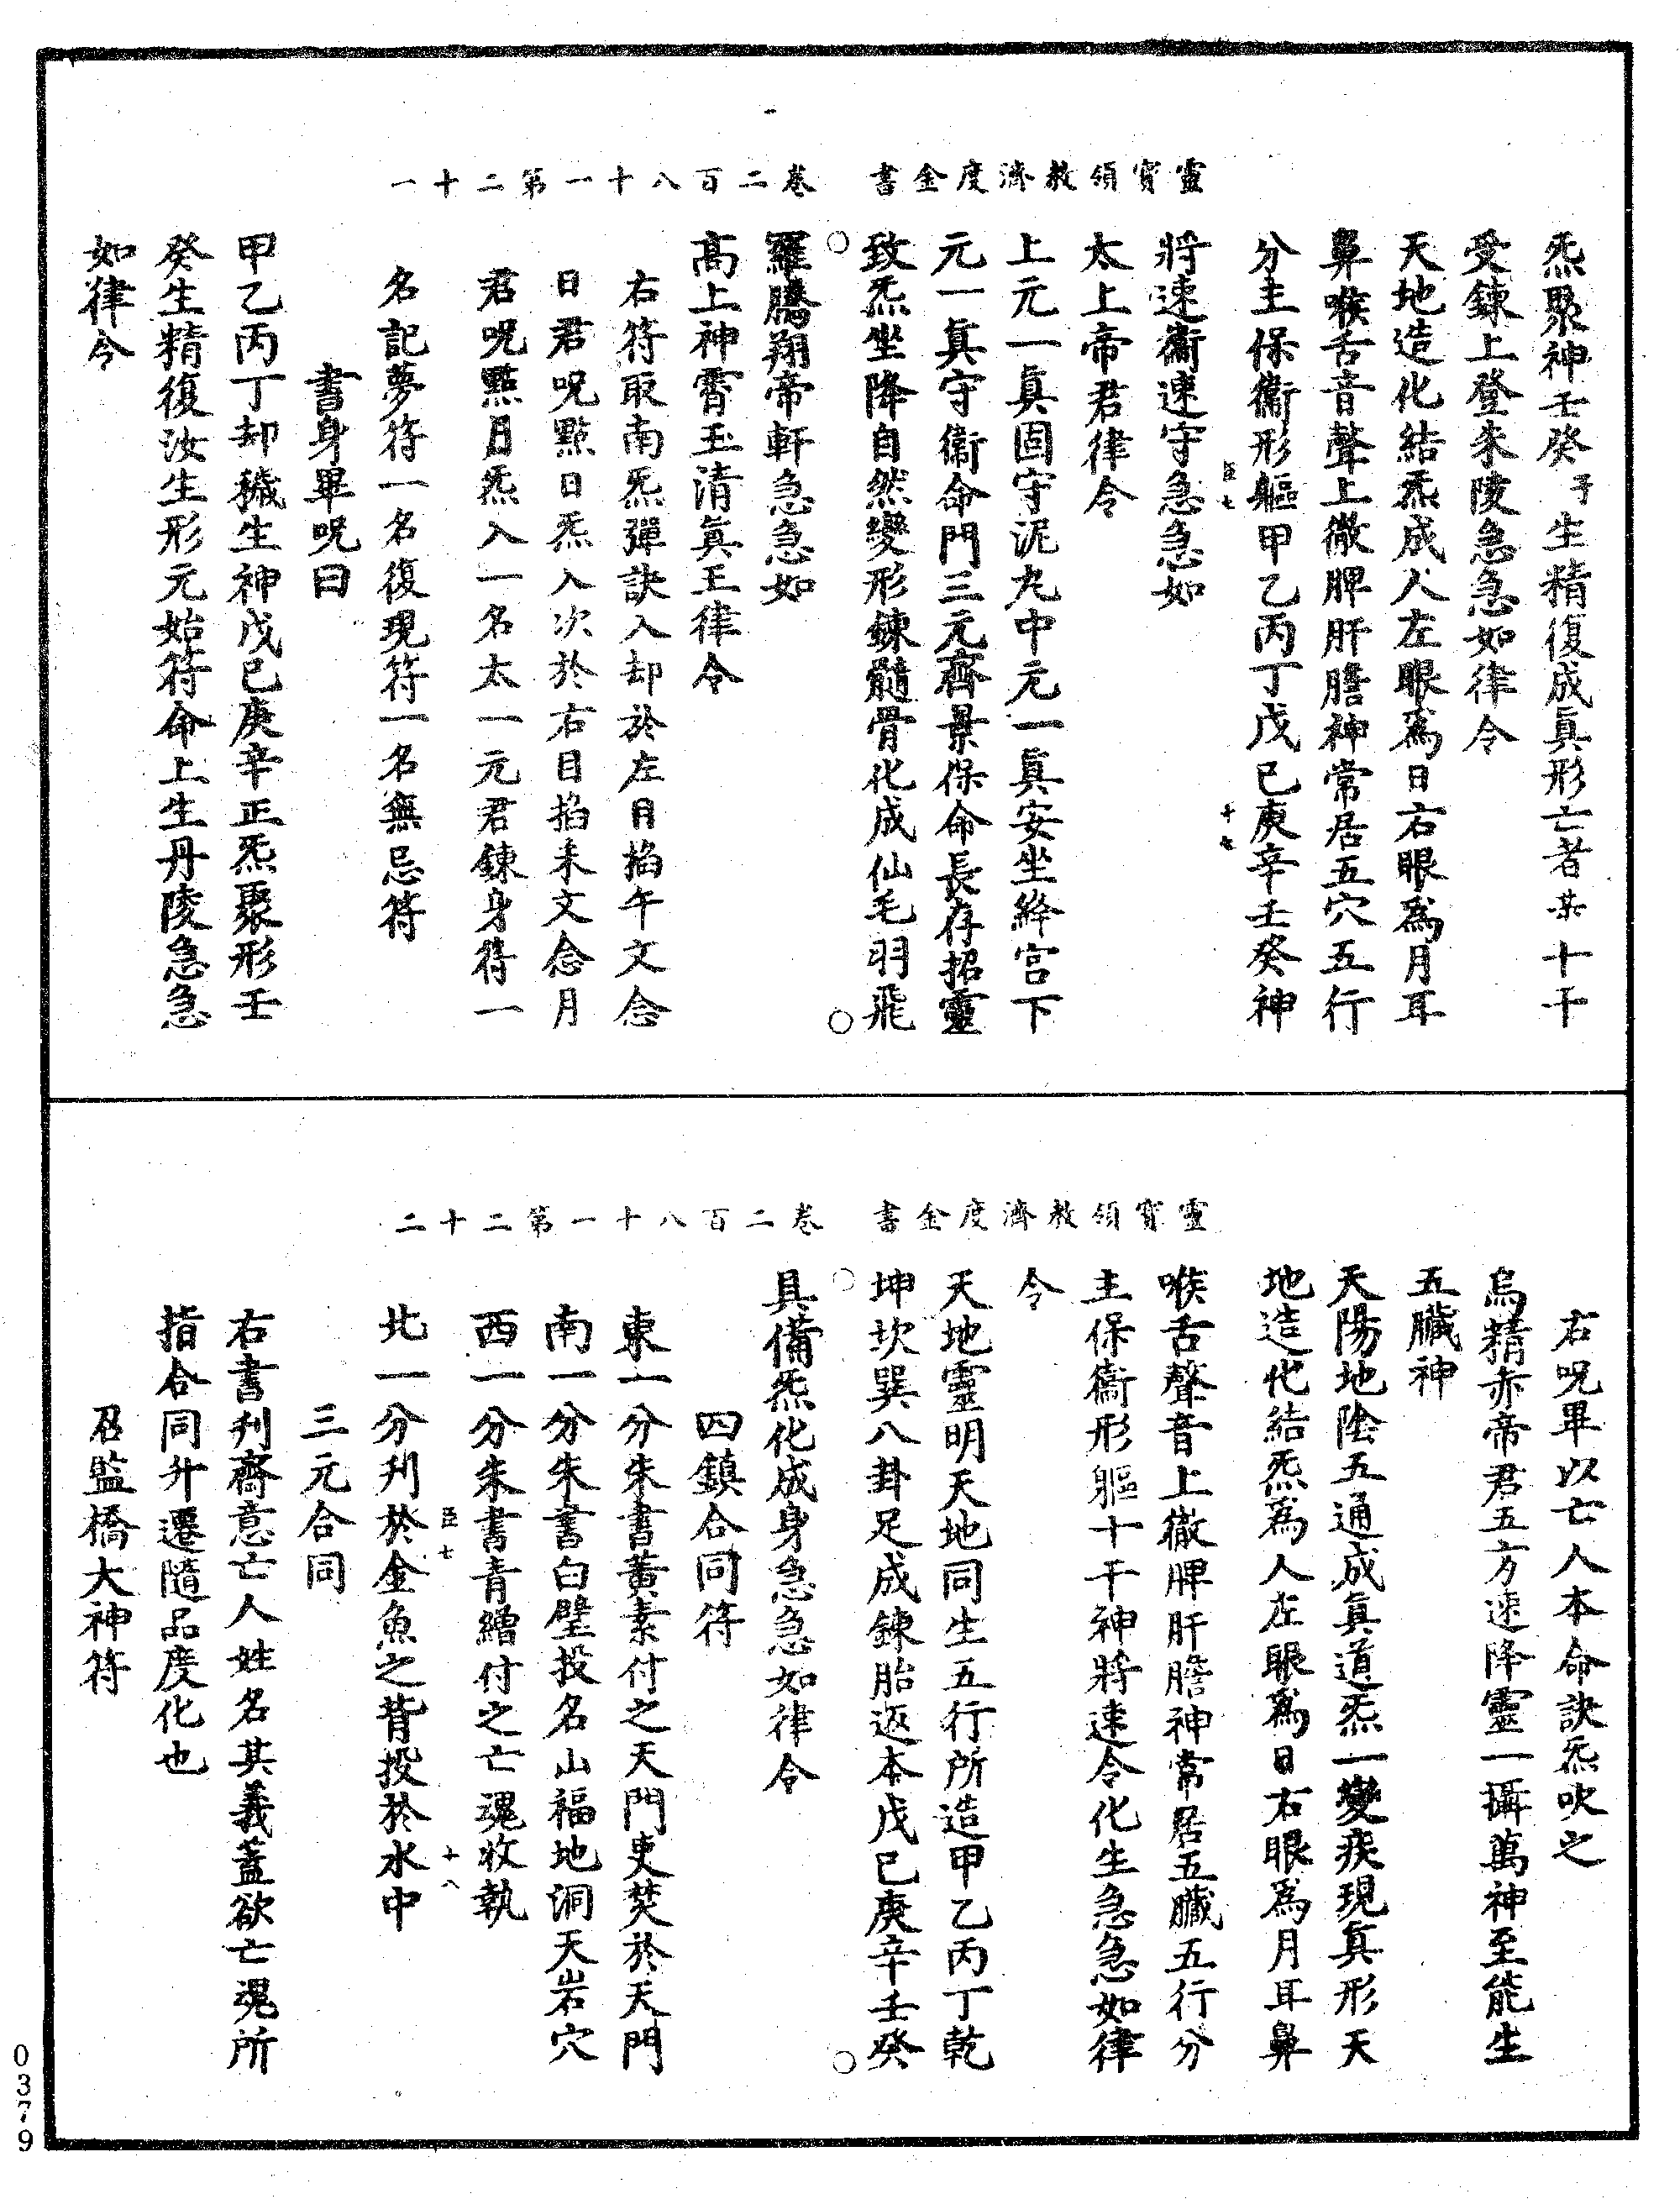 靈寶領教濟度金書　卷二百八十一第二十一
炁聚神壬癸子生精復成眞形亡者某十干
受鍊上登朱陵急急如律令
天地造化結炁成人左眼爲日右眼爲月耳
鼻喉舌音聲上徹脾肝膽神常居五穴五行
分主保衞形軀甲乙丙丁戊己庚辛壬癸神
臣七　十七
將速衞速守急急如
太上帝君律令
上元一眞固守泥丸中元一眞安坐絳宮下
元一眞守衞命門三元齊景保命長存招靈
致炁坐降自然變形鍊髓骨化成仙毛羽飛
羅騰翔帝軒急急如
高上神霄玉清眞王律令
右符取南炁彈訣入却於左目掐午文念
日君呪點日炁入次於右目掐未文念月
君呪點月炁入一名太一元君鍊身符一
名記夢符一名復現符一名無忌符
書身畢呪曰
甲乙丙丁却穢生神戊己庚辛正炁聚形壬
癸生精復汝生形元始符命上生丹陵急急
如律令
靈寶領教濟度金書　卷二百八十一第二十二
右呪畢以亡人本命訣炁吹之
烏精赤帝君五方速降靈一攝萬神至能生
五臟神
天陽地陰五通成眞道炁一變疾現眞形天
地造化結炁爲人左眼爲日右眼爲月耳鼻
喉舌聲音上徹脾肝膽神常居五臟五行分
主保衞形軀十干神將速令化生急急如律
令
天地靈明天地同生五行所造甲乙丙丁乾
坤坎巽八卦足成鍊胎返本戊己庚辛壬癸
具備炁化成身急急如律令
四鎮合同符
東一分朱書黃素付之天門吏焚於天門
南一分朱書白壁投名山福地洞天岩穴
西一分朱書青繒付之亡魂收執
臣七　十八
北一分刋於金魚之背投於水中
三元合同
右書刋齋意亡人姓名其義蓋欲亡魂所
指合同升遷隨品度化也
召監橋大神符
0379